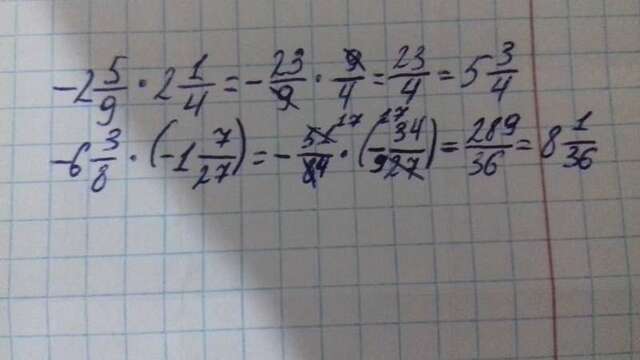 -2 5/9 · 2 1/4 = -23/9 · 9/4 = 23/4 = 5 3/4
-6 3/8 · (-1 7/27) = -51 17/84 · (-34 17/9 27) = 289/36 = 8 1/36